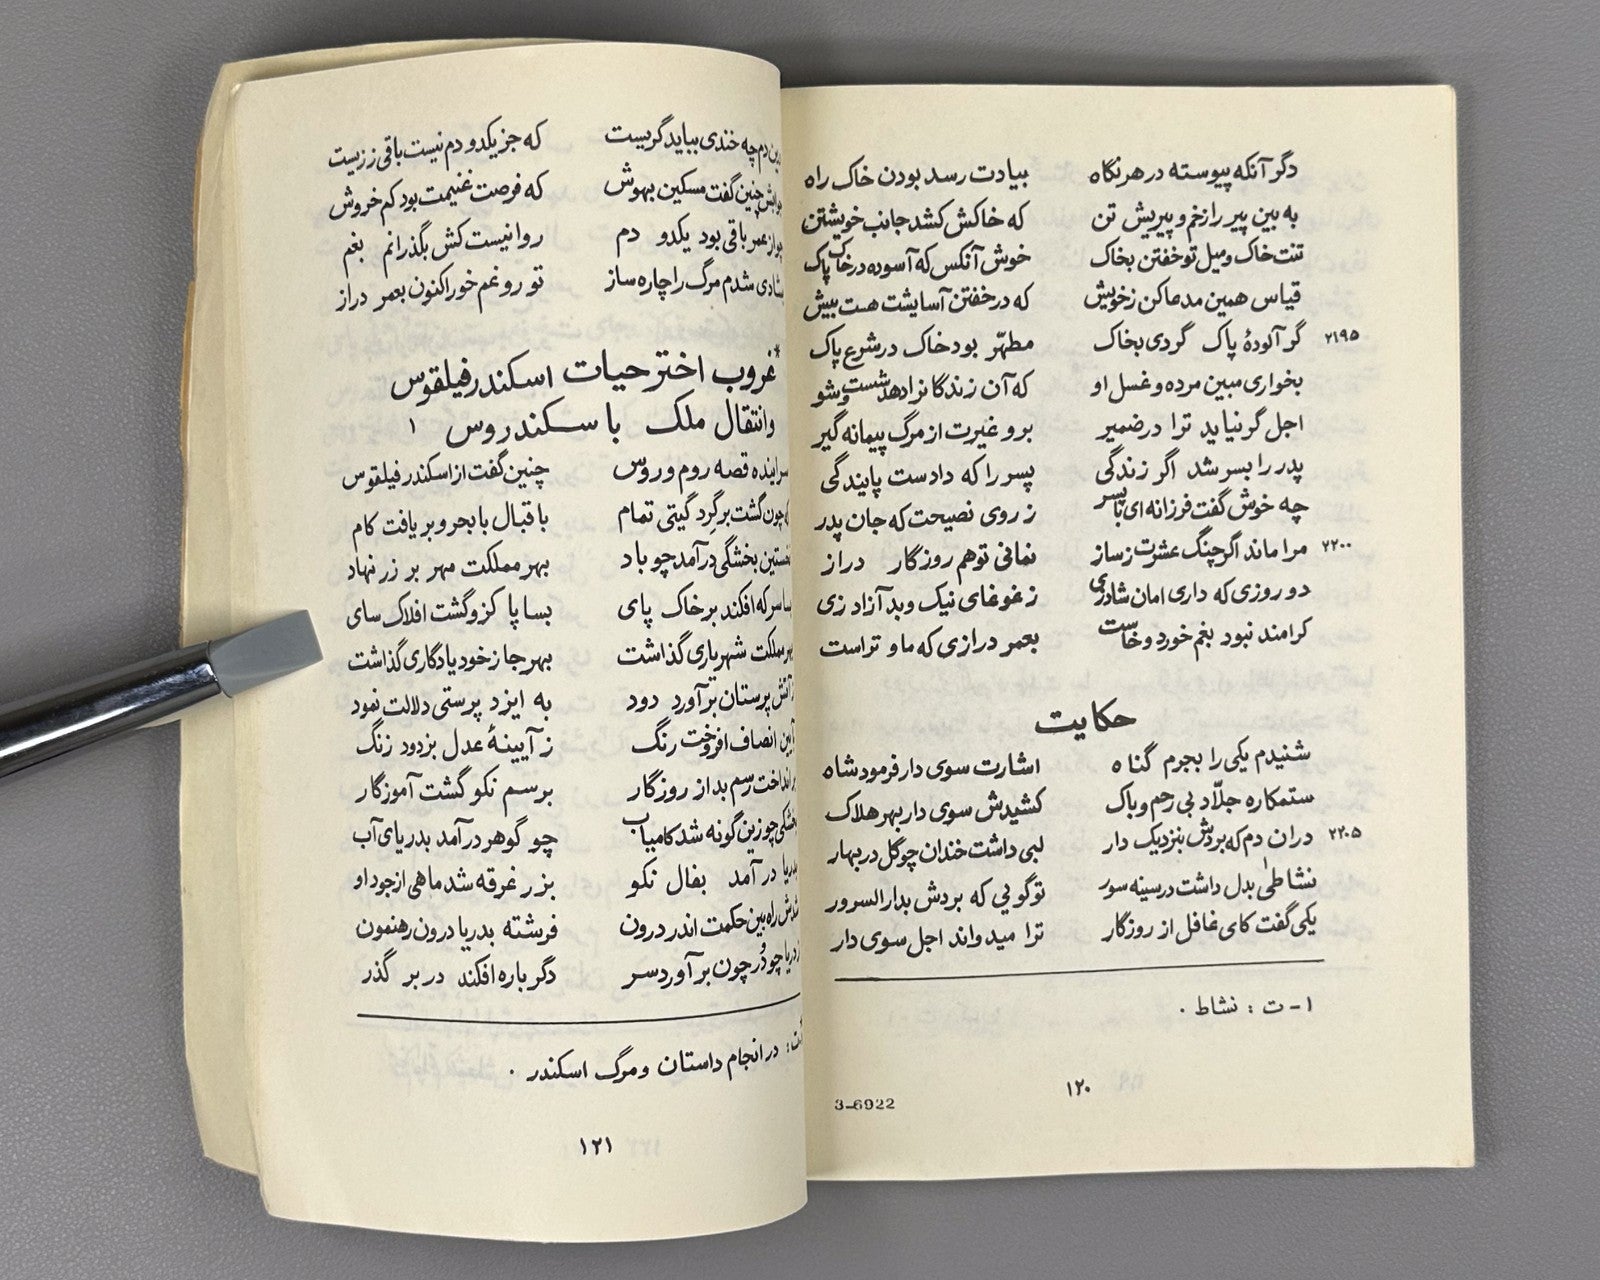 دگر آنکه پیوسته در هر نگاه بیادت رسد بودن خاک راه
به بین پیر را زخم و پیریش تن که خاکش کشد جانب خویشتن
تنت خاک و میل تو خفتن بخاک خوش آنکس که آسوده در خاک پاک
قیاس همین مدعا کن ز خویش که در خفتن آسایشت هست بیش
۲۱۹۵ گر آلودهٔ پاک گردی بخاک مطهّر بود خاک در شرع پاک
بخواری مبین مرده و غسل او که آن زندگانراد هد شست و شو
اجل گر نیاید ترا در ضمیر برو غیرت از مرگ پیمانه گیر
پدر را بسر شد اگر زندگی پسر را که دادست پایندگی
چه خوش گفت فرزانه ای با پسر ز روی نصیحت که جان پدر
۲۲۰۰ مرا ماند اگر چنگ عشرت ز ساز نمانی تو هم روزگار دراز
دو روزی که داری امان شاد زی ز غوغای نیک و بد آزاد زی
کرامند نبود بغم خورد و خاست بعمر درازی که ما و تراست
حکایت
شنیدم یکی را بجرم گناه اشارت سوی دار فرمود شاه
ستمکاره جلّاد بی رحم و باک کشیدش سوی دار بهر هلاک
۲۲۰۵ در ان دم که بردش بنزدیک دار لبی داشت خندان چو گل در بهار
نشاطی۱ بدل داشت در سینه سور تو گویی که بردش بدار السرور
یکی گفت کای غافل از روزگار ترا میدواند اجل سوی دار
۱- ت : نشاط .
۱۲۰
3-6922
دم چه خندی بباید گریست که جز یکدو دم نیست باقی ز زیست
چنین گفت مسکین بهوش که فرصت غنیمت بود کم خروش
عمر باقی بود یکدو دم روا نیست کش بگذرانم بغم
شدم مرگ را چاره ساز تو رو غم خور اکنون بعمر دراز
*غروب اختر حیات اسکندر فیلقوس
و انتقال ملک با سکندروس ۱
قصه روم و روس چنین گفت از اسکندر فیلقوس
چون گشت بر گرد گیتی تمام با قبال با بحر و بر یافت کام
نخستین بخشگی در آمد چو باد بهر مملکت مهر بر زر نهاد
سر که افکند بر خاک پای بسا پا کزو گشت افلاک سای
مملکت شهریاری گذاشت بهر جا ز خود یادگاری گذاشت
آتش پرستان بر آورد دود به ایزد پرستی دلالت نمود
انصاف افروخت رنگ ز آیینهٔ عدل بزدود زنگ
رسم بد از روزگار برسم نکو گشت آموزگار
چو زین گونه شد کامیاب چو گوهر در آمد بدریای آب
در آمد بفال نکو بزر غرقه شد ماهی از جود او
راه بین حکمت اندر درون فرشته بدریا درون رهنمون
چو دُر چون بر آورد سر دگر باره افکند در بر گذر
ت: در انجام داستان و مرگ اسکندر .
۱۲۱